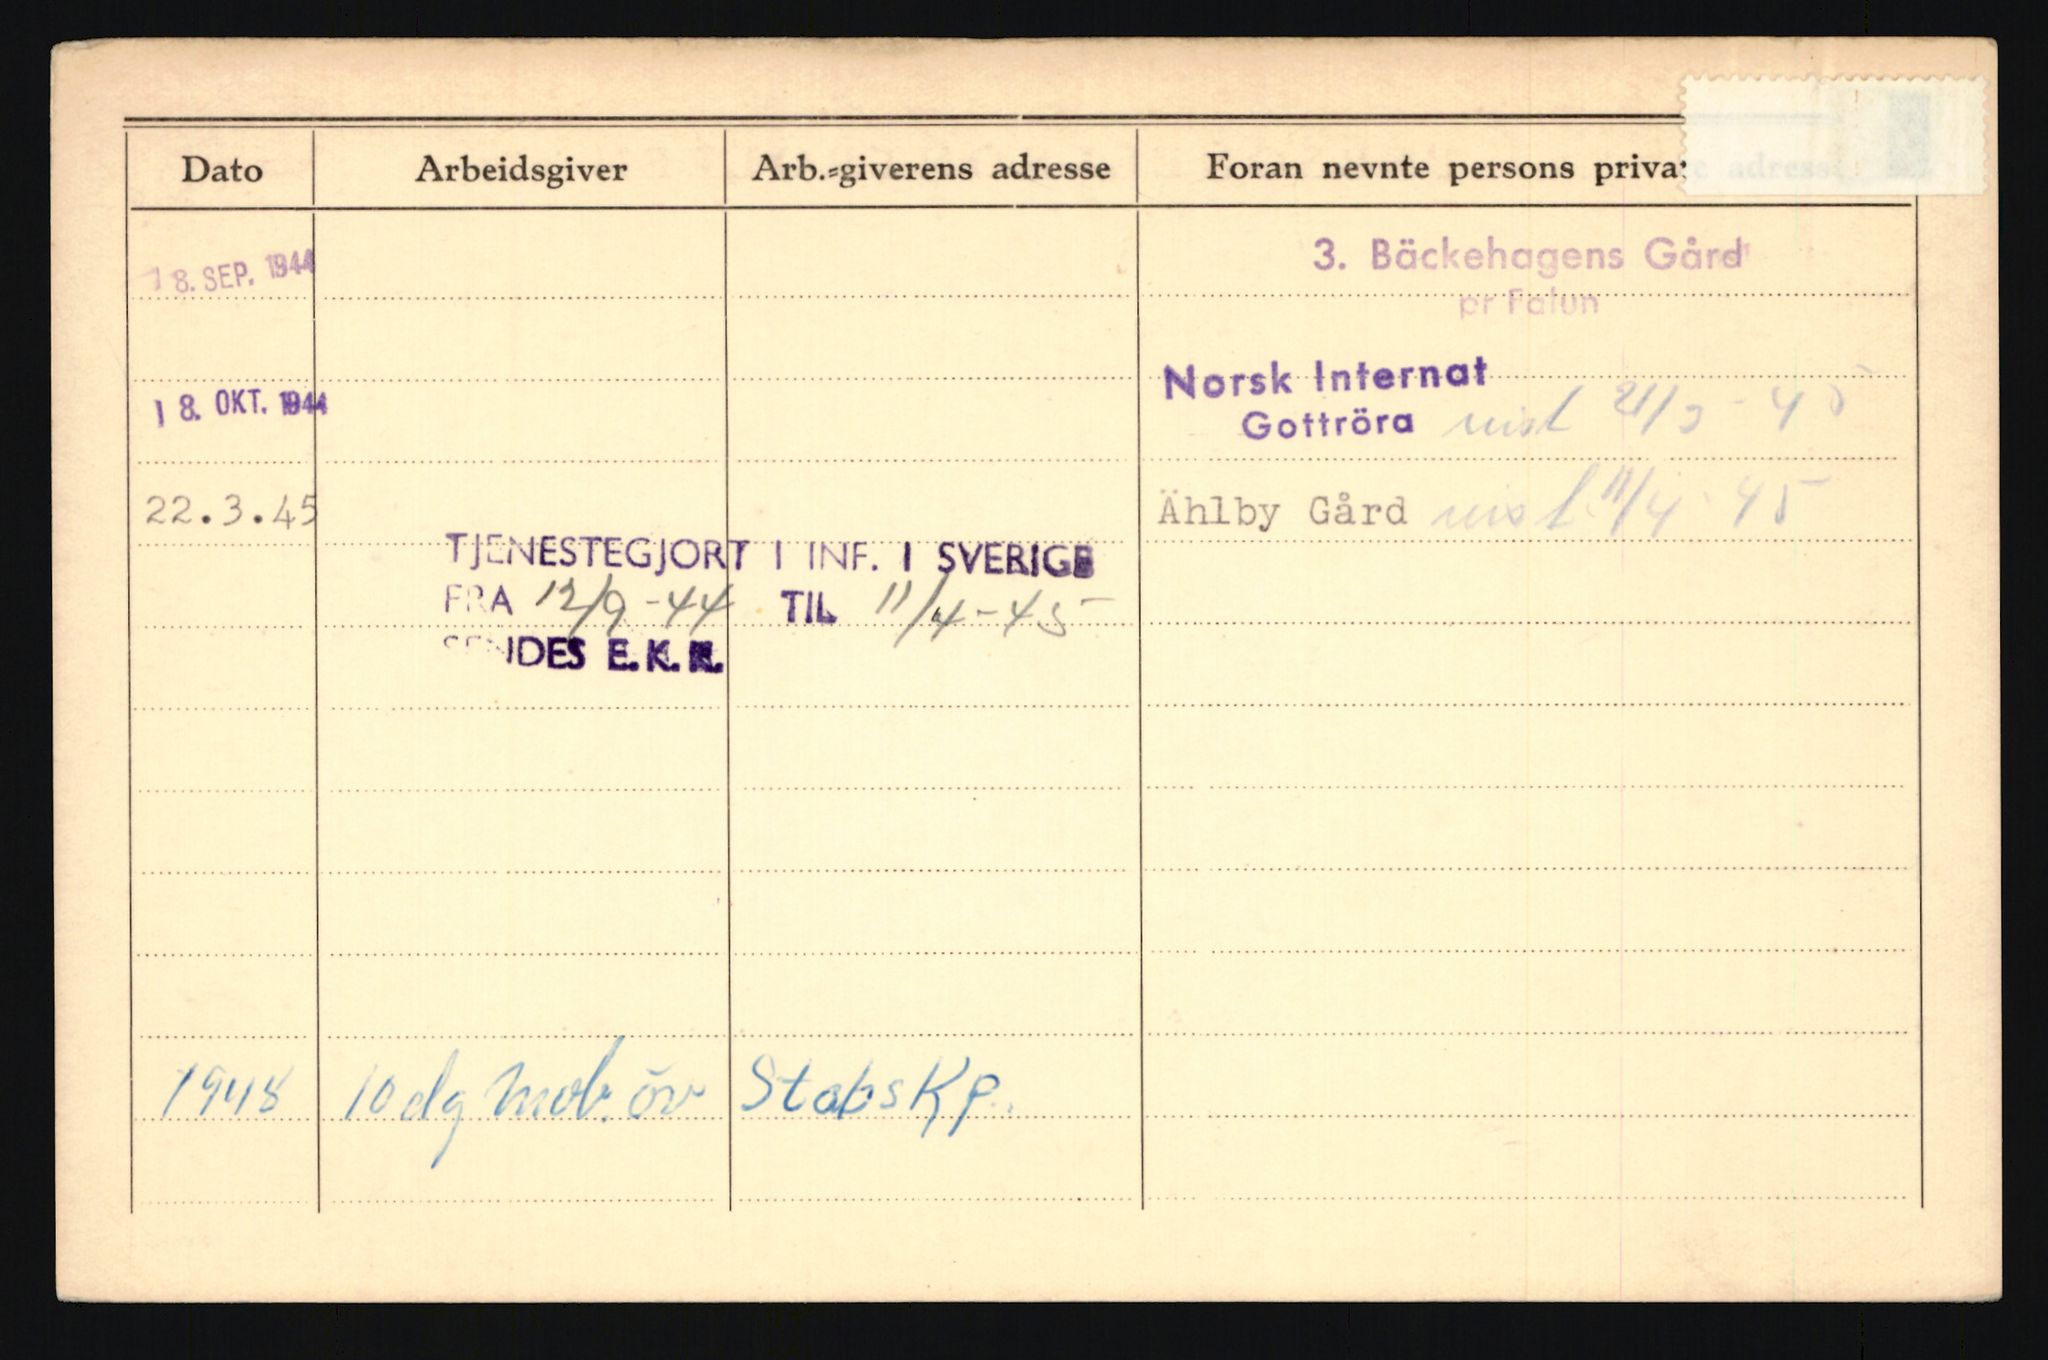 Dato Arbeidsgiver Arb.-giverens adresse Foran nevnte persons private adresse
18. SEP. 1944 3. Bäckehagens Gård
pr Falun
18. OKT. 1944 Norsk Internat
Gottröra 21/3-45
22.3.45 Ählby Gård 11/4-45
TJENESTEGJORT I INF. I SVERIGE
FRA 12/9-44 TIL 11/4-45
SENDES E.K.K.
1948 10 dg Mob. öv Stabs Kp.